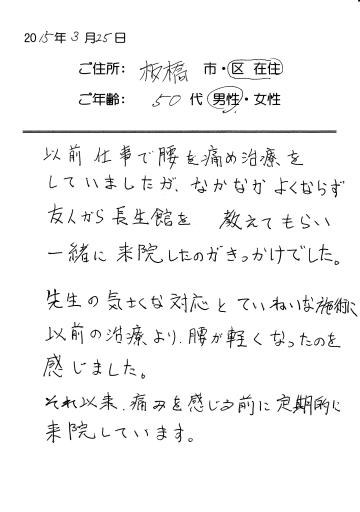 2015年3月25日
ご住所: 板橋 市・区 在住
ご年齢: 50 代 男性・女性
以前 仕事で腰を痛め治療を
していましたが、なかなかよくならず
友人から長生館を 教えてもらい
一緒に来院したのがきっかけでした。
先生の気さくな対応とていねいな施術に
以前の治療より、腰が軽くなったのを
感じました。
それ以来、痛みを感じる前に定期的に
来院しています。